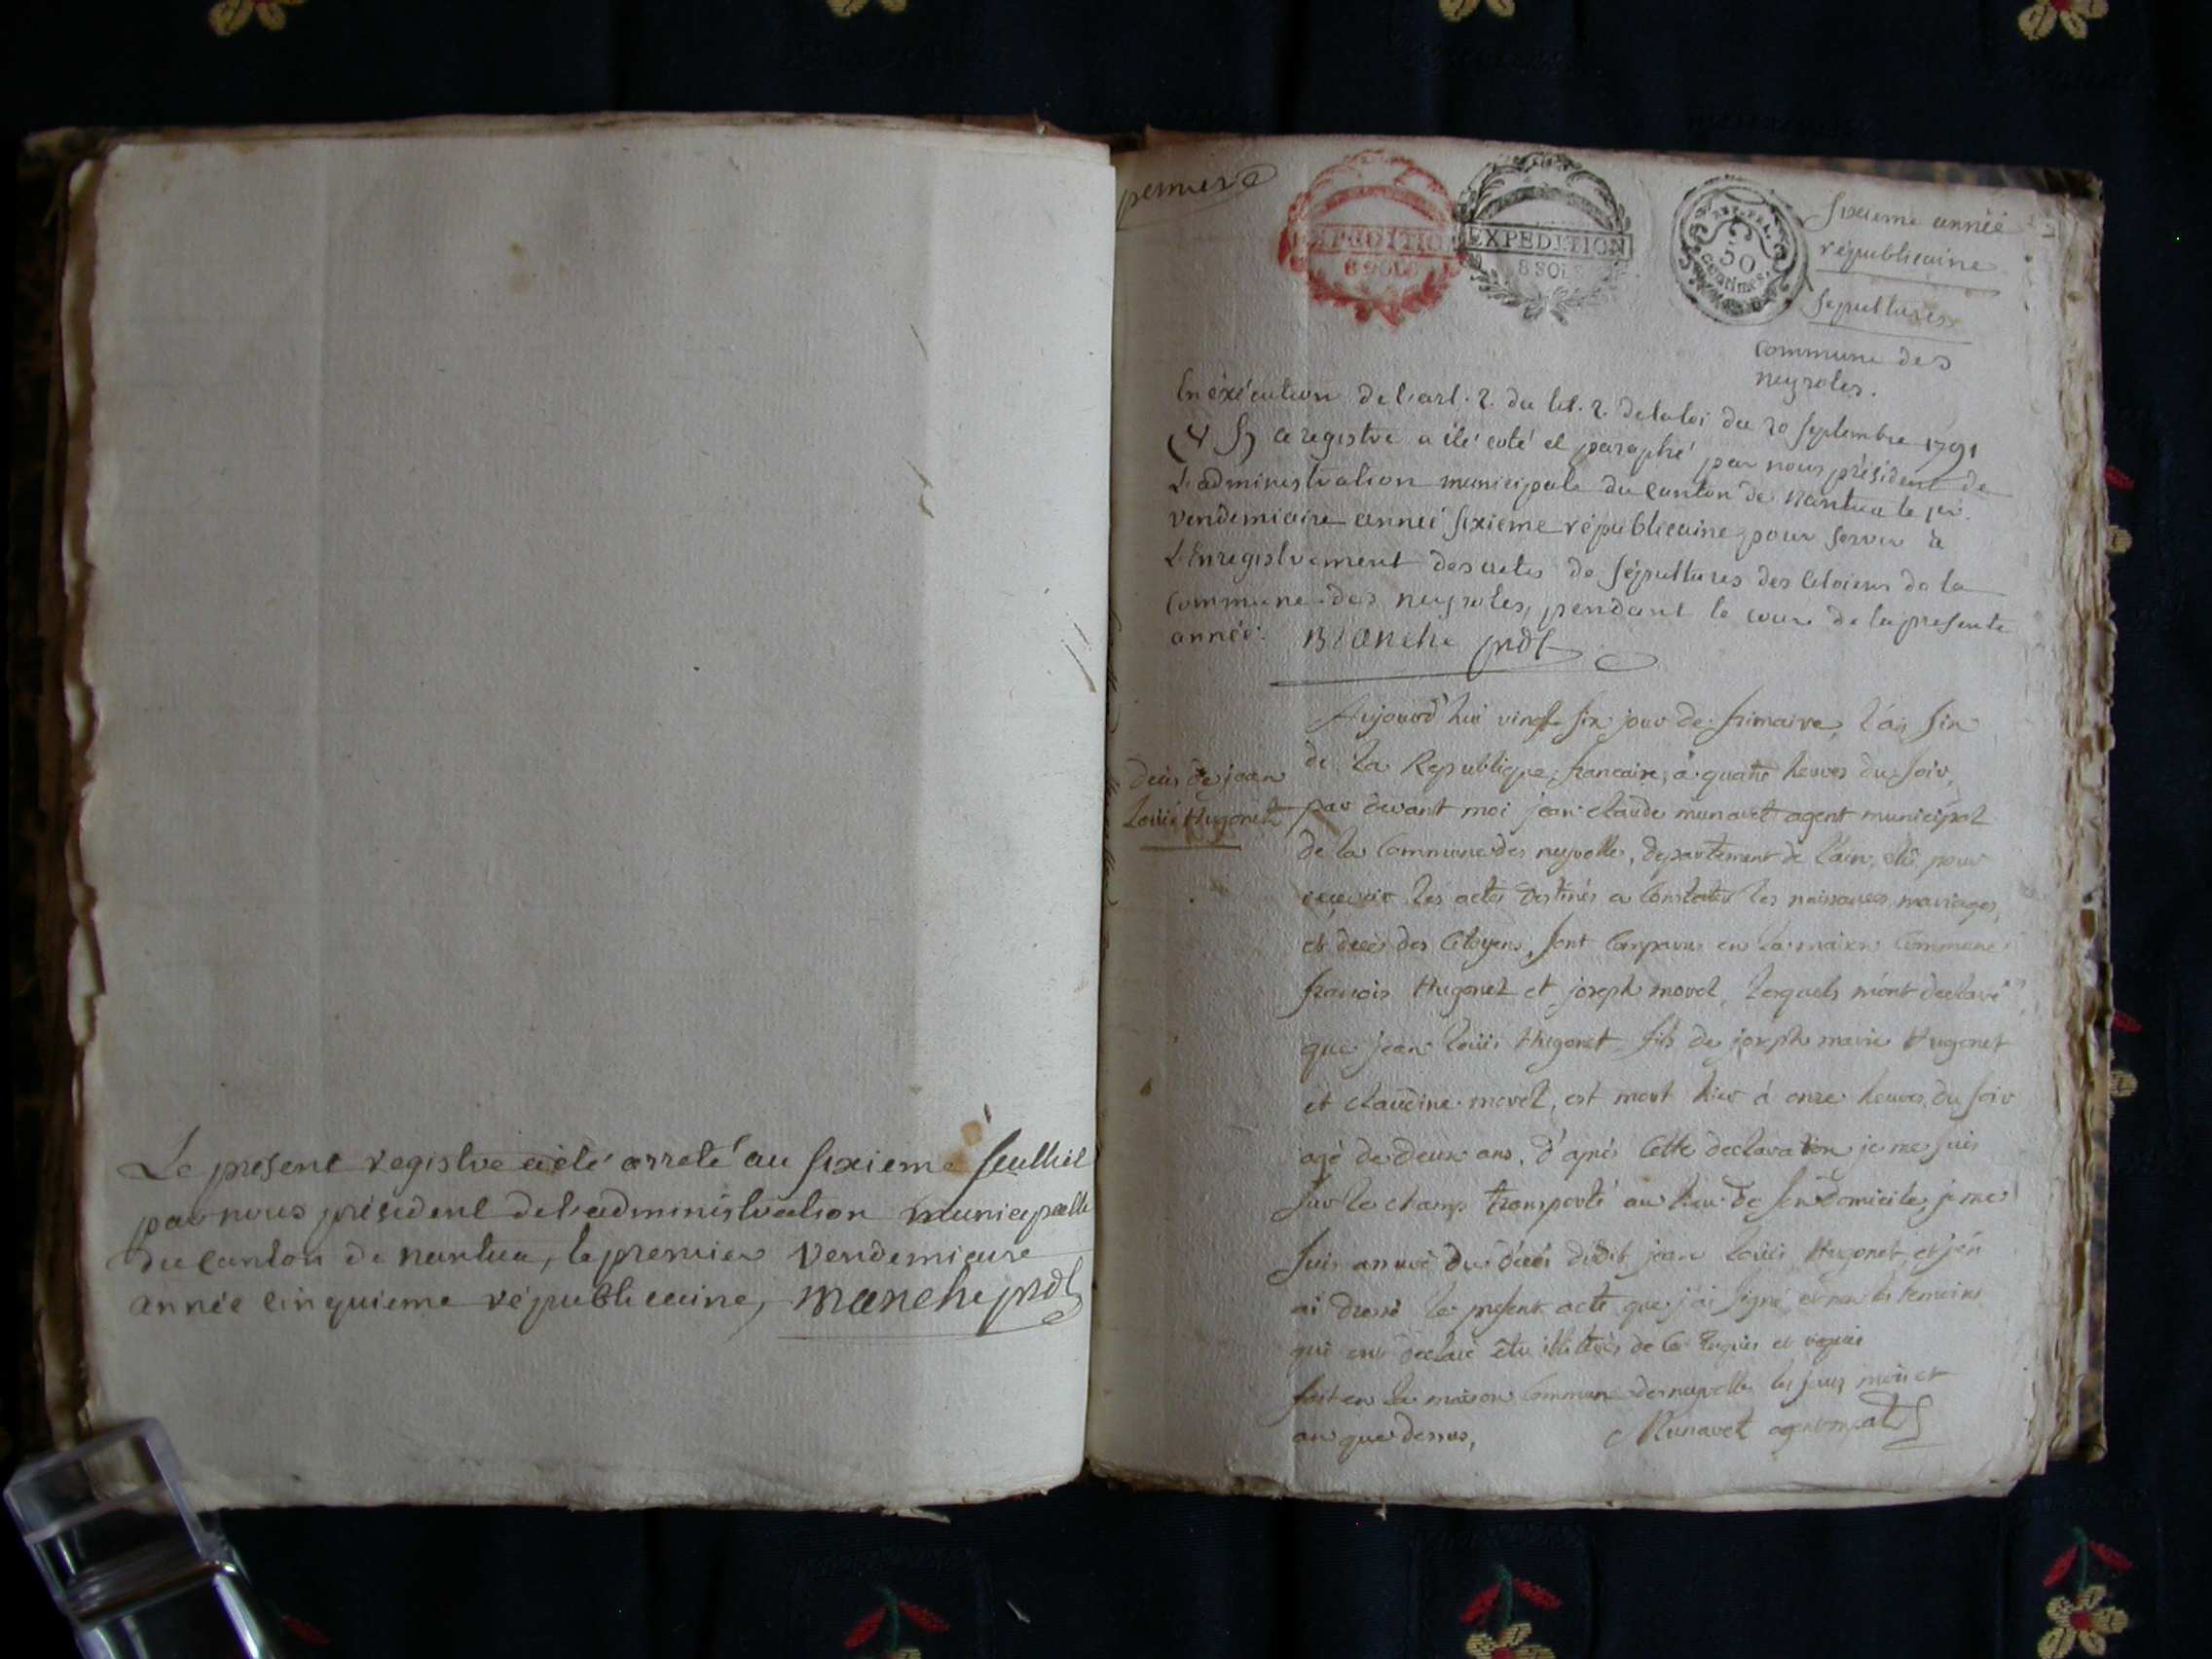 Le present registre a été arreté au sixieme feulliet
par nous président de l'administration municipalle
du canton de nantua, le premier vendemiaire
année cinquieme républicaine, manche pndt
premiere
EXPEDITION
8 SOLS
EXPEDITION
8 SOLS
REP. FRA.
50
centimes
sixieme année
républicaine
sepultures
commune des
neyroles.
En éxécution de l'art. 2. du tit. 2. de la loi du 20 septembre 1791
(V S) ce registre a été coté et paraphé par nous président de
L'administration municipale du canton de nantua le per.
vendemiaire année sixieme républicaine, pour servir à
L'Enregistrement des actes de sépultures des Citoiens de la
commune des neyroles, pendant le cours de la presente
année. manche pndt
Deces de jean
Louis Hugonet
Aujourd'hui vingt six jour de frimaire, l'an six
de la Republique francaise, à quatre heures du soir,
par devant moi jean claude munaret agent municipal
de la Commune des neyrolles, departement de l'ain, élu pour
recevoir les actes destinés a Constater les naissances, mariages,
et decès des Citoyens, sont Comparus en la maison Commune
francois Hugonet et joseph morel, lesquels m'ont declaré
que jean Louis Hugonet fils de joseph marie Hugonet
et claudine morel, est mort hier à onze heures du soir
agé de deux ans, d'après Cette declaration je me suis
sur le champ transporté au lieu de son domicile, je me
suis assuré du decès dudit jean louis Hugonet, et j'en
ai dressé le present acte que j'ai signé et non les temoins
qui ont declaré etre illitérés de ce enquis et requis
fait en la maison Commune des neyrolles les jour mois et
an que dessus, Munaret agent mpal